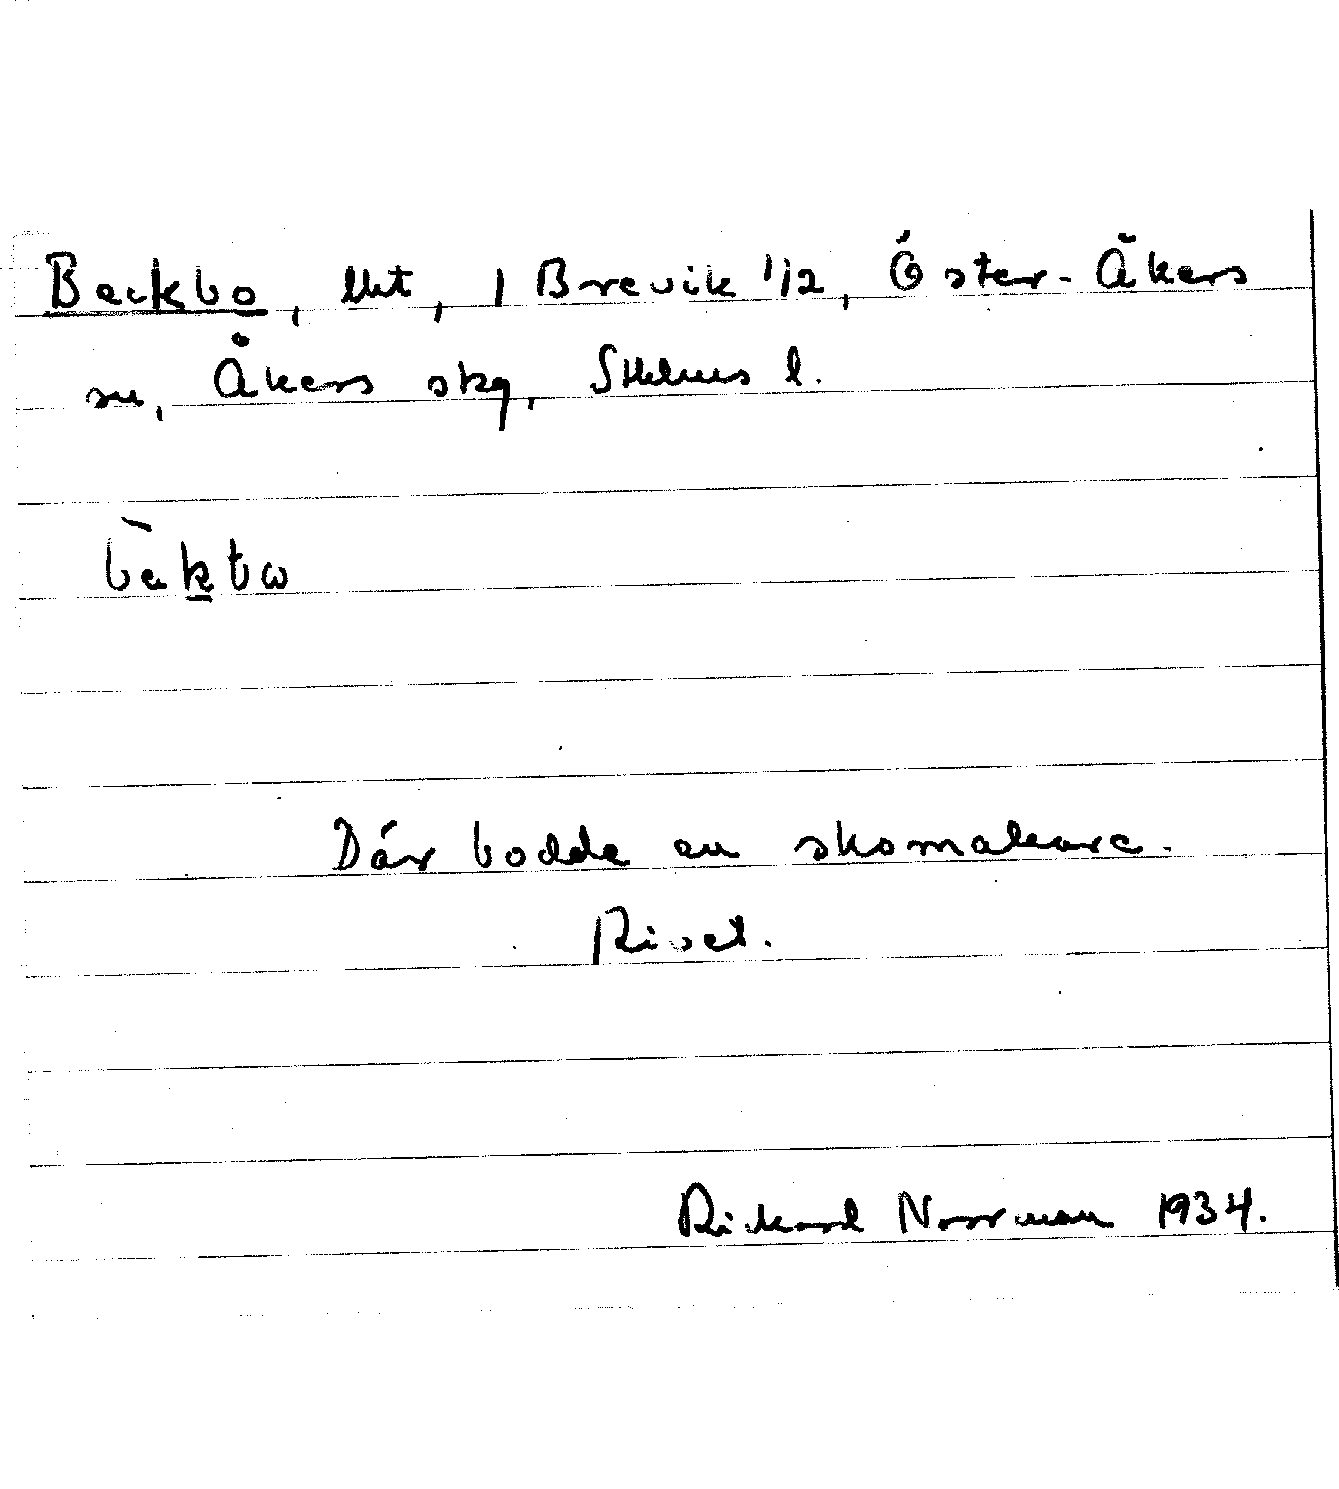 Backbo, lht, 1 Brevik 1/2, Öster-Åkers
sn, Åkers skg, Sthlms l.
bàkbω
Där bodde en skomakare.
Rivet.
Rickard Norrman 1934.